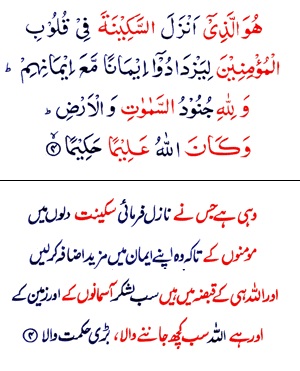 هُوَ الَّذِیْۤ اَنْزَلَ السَّکِیْنَةَ فِیْ قُلُوْبِ
الْمُؤْمِنِیْنَ لِیَزْدَادُوْۤا اِیْمَانًا مَّعَ اِیْمَانِهِمْ ؕ
وَ لِلّٰهِ جُنُوْدُ السَّمٰوٰتِ وَ الْاَرْضِ ؕ
وَ کَانَ اللّٰهُ عَلِیْمًا حَکِیْمًا ﴿۴﴾
وہی ہے جس نے نازل فرمائی سکینت دلوں میں
مومنوں کے تاکہ وہ اپنے ایمان میں مزید اضافہ کرلیں
اور اللہ ہی کے قبضہ میں ہیں سب لشکر آسمانوں کے اور زمین کے
اور ہے اللہ سب کچھ جاننے والا، بڑی حکمت والا ﴿۴﴾